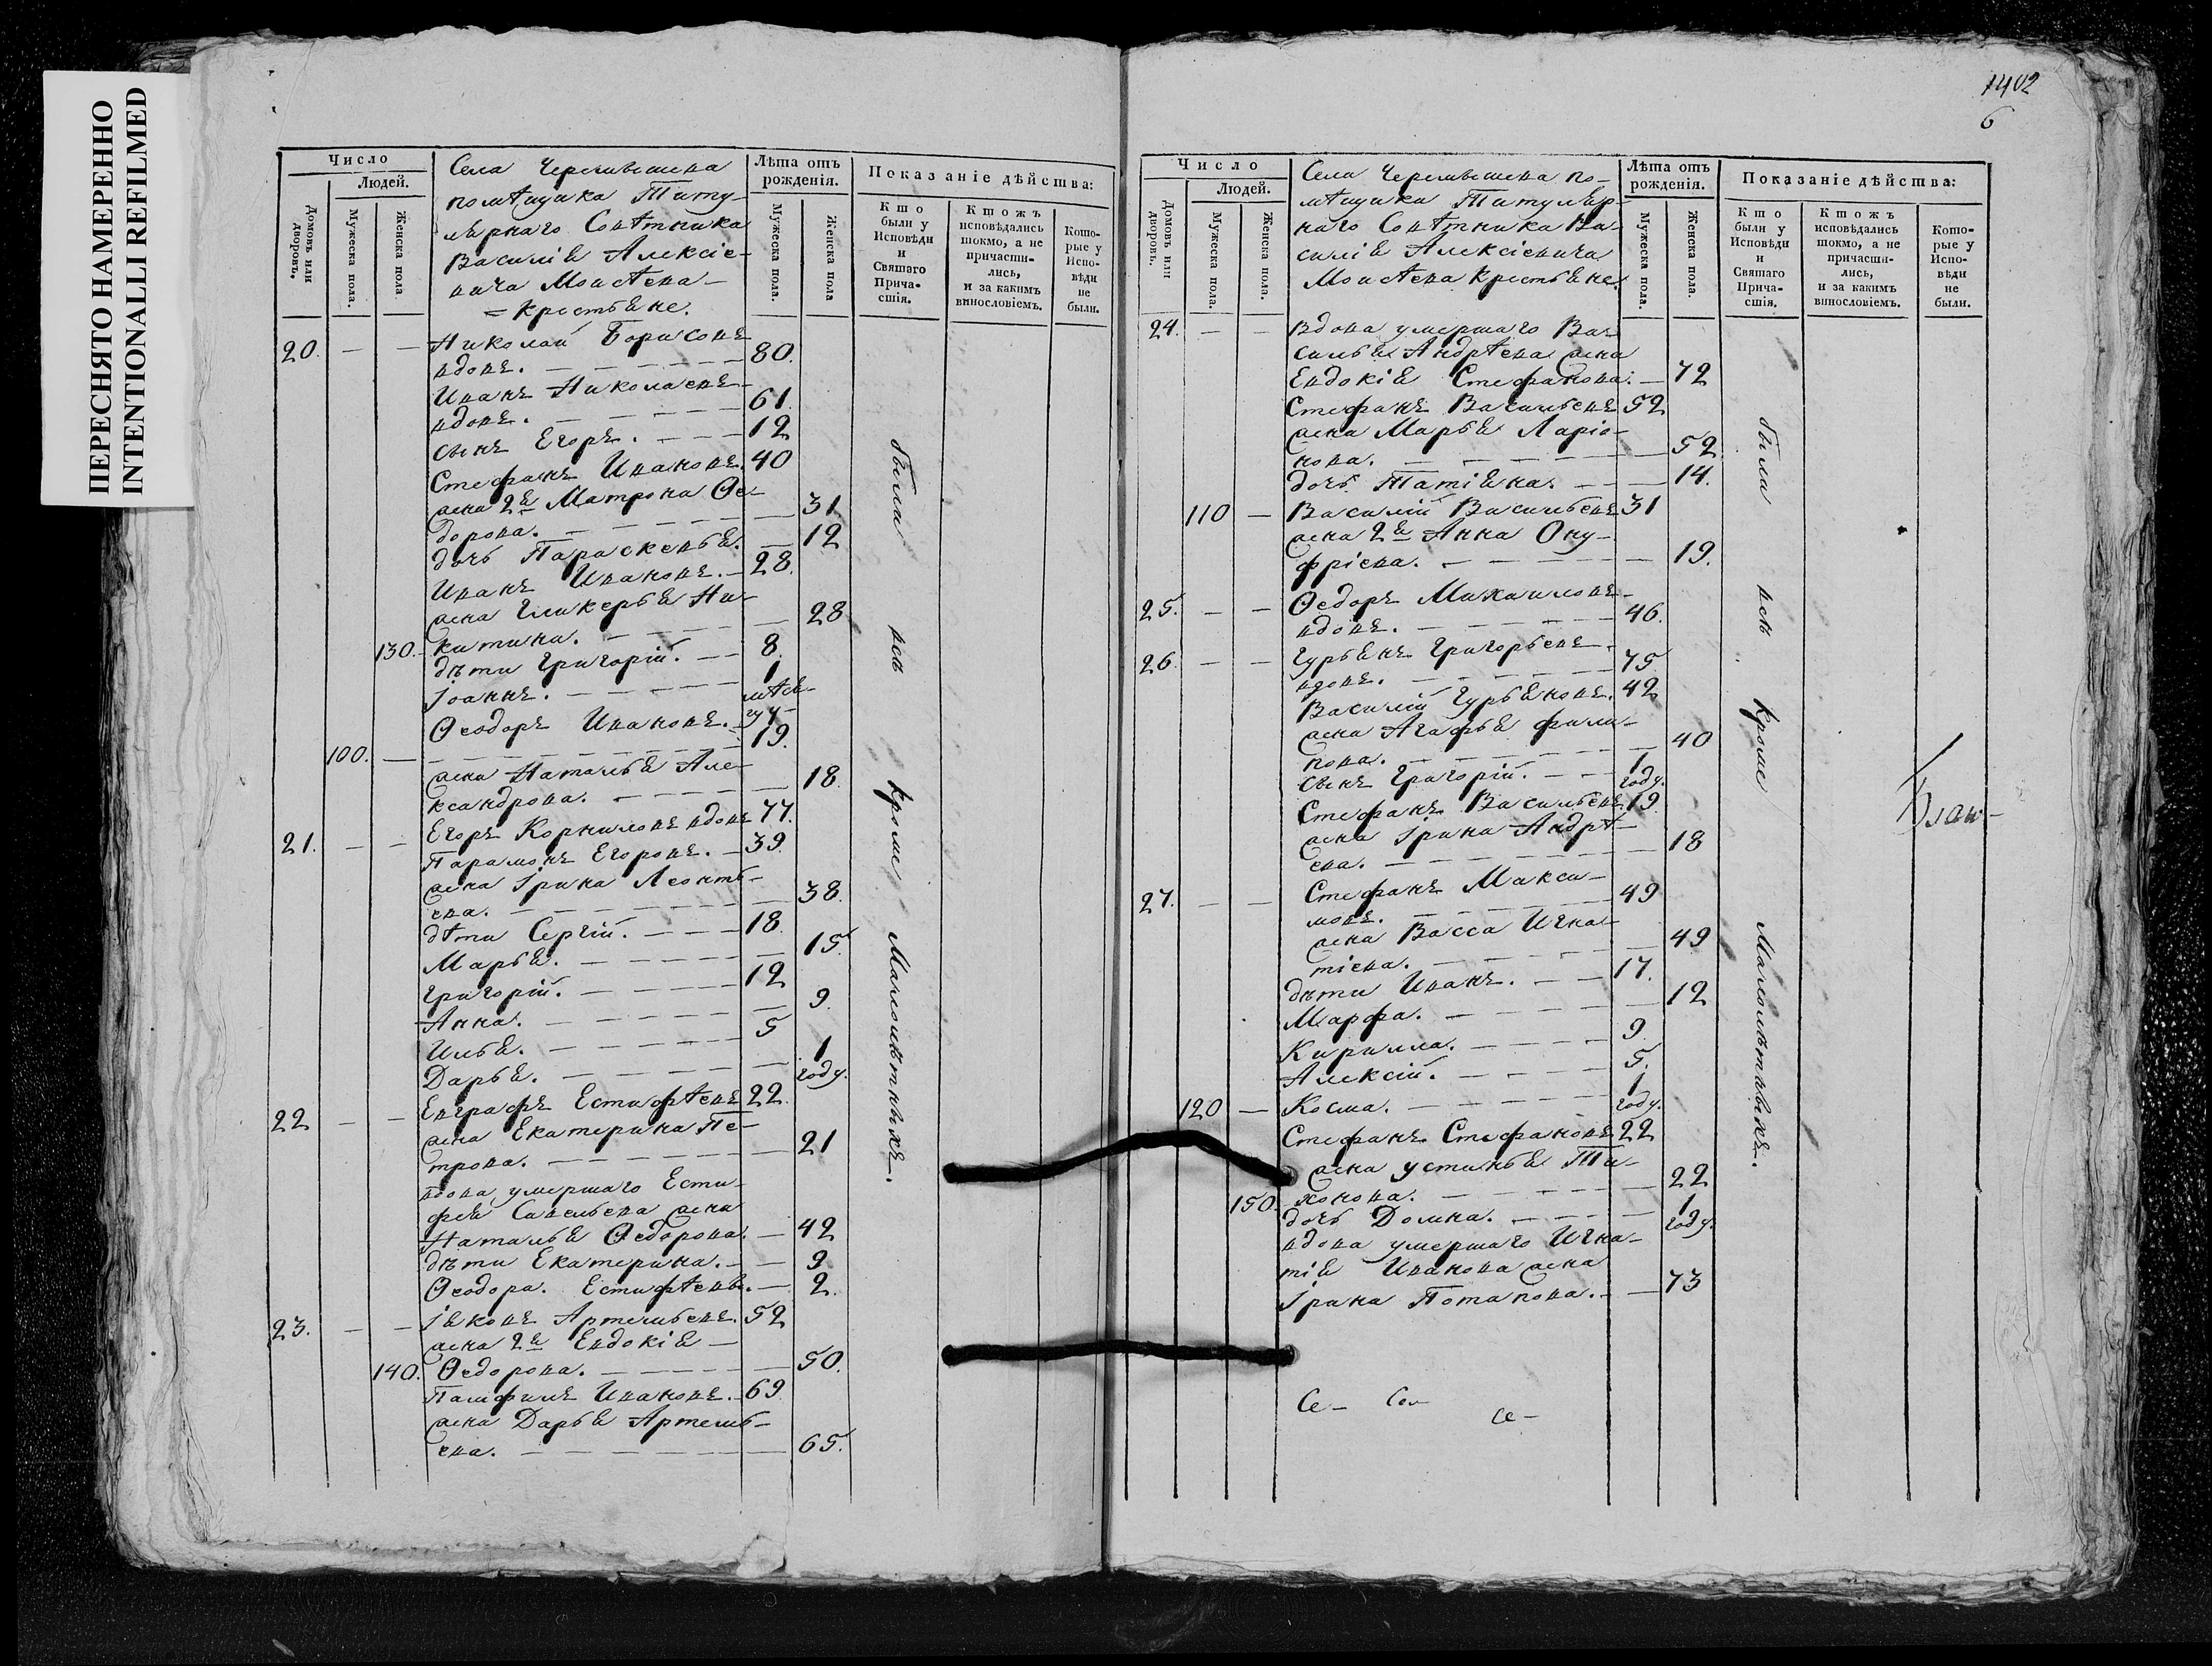 ПЕРЕСНЯТО НАМЕРЕННО
INTENTIONALLI REFILMED
Число
Людей.
Домовъ или дворовъ.
Мужеска пола.
Женска пола
Села Черемышева
помѣщика Титу-
лярнаго Совѣтника
Василія Алексіе-
вича Моисѣева
= крестьяне.
Лѣта отъ рожденія.
Мужеска пола.
Женска пола
Показаніе дѣйства:
Кто были у Исповѣди и Святаго Прича-стія.
Ктожъ исповѣдались токмо, а не причасти-лись, и за какимъ винословіемъ.
Кото-рые у Испо-вѣди не были.
20. — — Николай Борисовъ
вдовъ. — — — 80.
Иванъ Николаевъ
вдовъ. — — — 61.
сынъ Егоръ. — — — 12
Стефанъ Ивановъ. 40
жена 2я Матрона Ѳе-
дорова. — — — 31
дочь Параскевья. — 12
Иванъ Ивановъ. — 28.
жена Гликерья Ни-
130. китина. — — — 28
дѣти Григорій. — — 8.
Іоаннъ. — — — 1 мѣся-
Ѳеодоръ Ивановъ. —
100. — — — — 19.
жена Наталья Але-
ксандрова. — — — 18
21. — — Егоръ Корниловъ вдовъ 77.
Парамонъ Егоровъ. — 39.
жена Ірина Леонть-
ева. — — — 38.
дѣти Сергій. — — — 18.
Марья. — — — 15.
Григорій. — — — 12
Анна. — — — 9.
Илья. — — — 5
Дарья. — — — 1 году.
22 — — Евграфъ Естифѣевъ 22.
жена Екатерина Пе-
трова. — — — 21
вдова умершаго Ести-
фея Савельева жена
Наталья Ѳедорова. — 42
дѣти Екатерина. — — 9
Ѳеодора. Естифѣевы. — 2.
23. — — Іяковъ Артемьевъ. 52
жена 2я Евдокія —
140. Ѳедорова. — — — 50.
Памфилъ Ивановъ. — 69.
жена Дарья Артемь-
ева. — — — 65.
были всѣ кромѣ Малолѣтныхъ.
1402
6
Число
Людей.
Домовъ или дворовъ.
Мужеска пола.
Женска пола.
Села Черемышева по-
мѣщика Титуляр-
наго Совѣтника Ва-
силія Алексіевича
Моисѣева крестьяне.
Лѣта отъ рожденія.
Мужеска пола.
Женска пола.
Показаніе дѣйства:
Кто были у Исповѣди и Святаго Прича-стія.
Ктожъ исповѣдались токмо, а не причасти-лись, и за какимъ винословіемъ.
Кото-рые у Испо-вѣди не были.
24. — — Вдова умершаго Ва-
силья Андрѣева жена
Евдокія Стефанова. — 72
Стефанъ Васильевъ 52
жена Марья Ларіо-
нова. — — — 52
дочь Татіяна. — — 14.
110 — Василій Васильевъ 31
жена 2я Анна Ону-
фріева. — — — 19.
25. — — Ѳедоръ Михаиловъ
вдовъ. — — — 46.
26. — — Гурьянъ Григорьевъ
вдовъ. — — — 75.
Василій Гурьяновъ. 42
жена Агафья Фили-
пова. — — — 40
сынъ Григорій. — — 1 году.
Стефанъ Васильевъ. 19.
жена Ірина Андрѣ-
ева. — — — 18
27. — — Стефанъ Макси-
мовъ. — — — 49
жена Васса Игна-
тіева. — — — 49
дѣти Иванъ. — — 17.
Марфа. — — — 12
Кирилла. — — — 9.
Алексій. — — — 5.
120 — Косма. — — — 1 году.
Стефанъ Стефановъ 22
жена устинья Ти-
150. хонова. — — — 22
дочь Домна. — — — 1 году.
вдова умершаго Игна-
тія Иванова жена
Ірина Потапова. — — 73
были всѣ кромѣ Малолѣтныхъ.
Се-
Се-